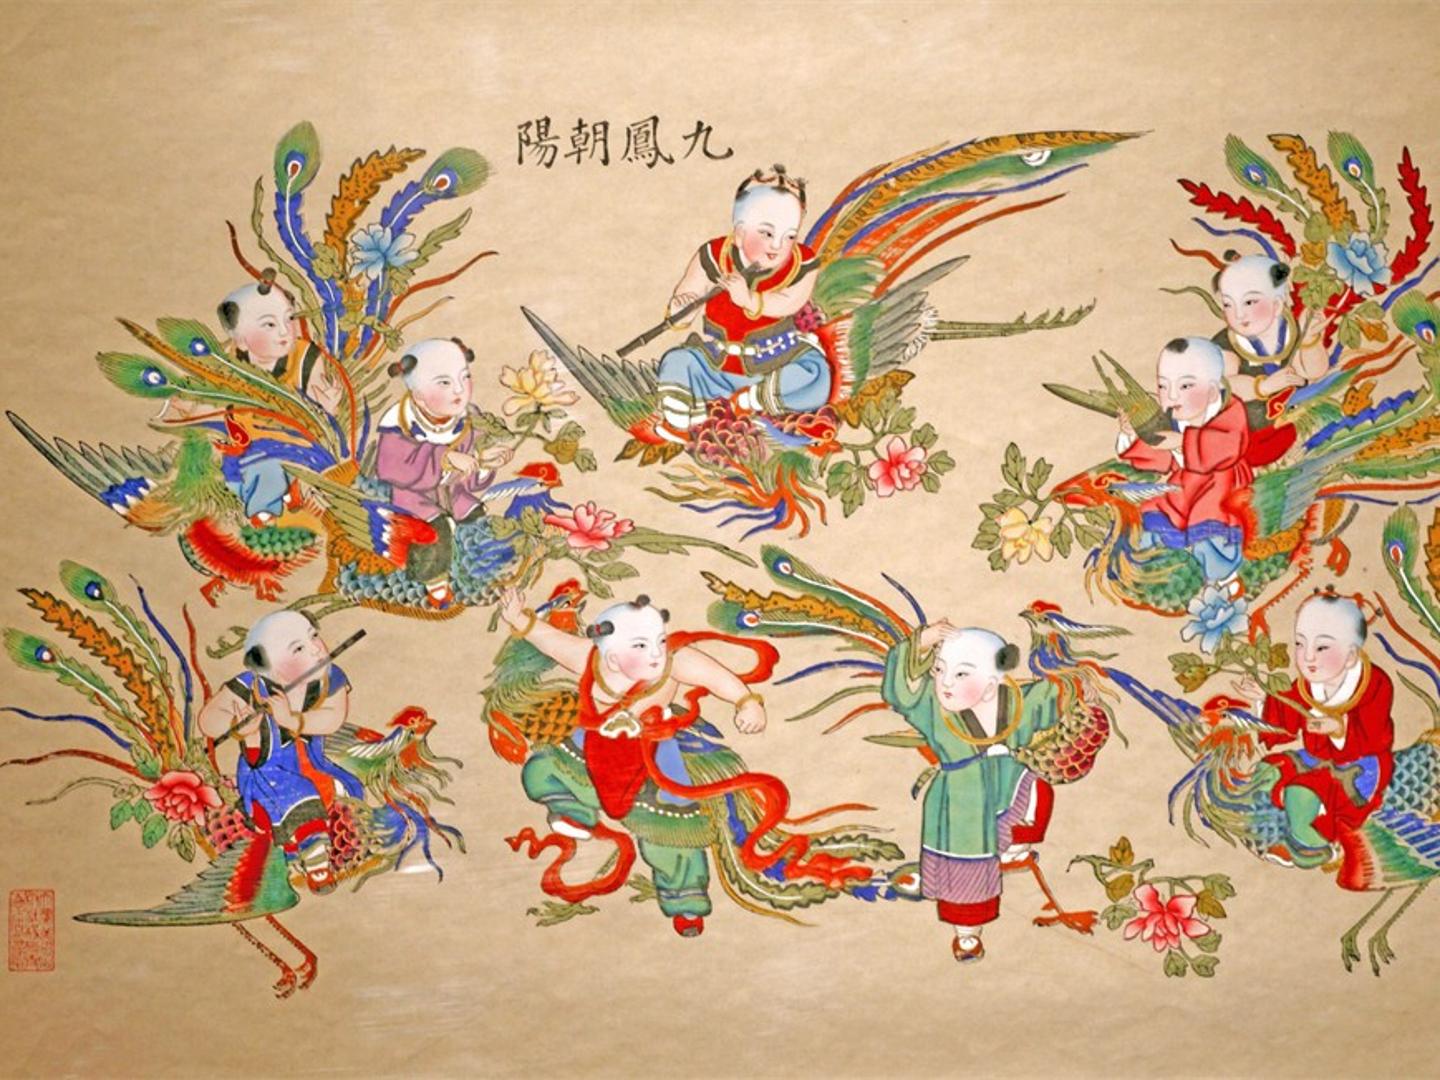 九鳳朝陽